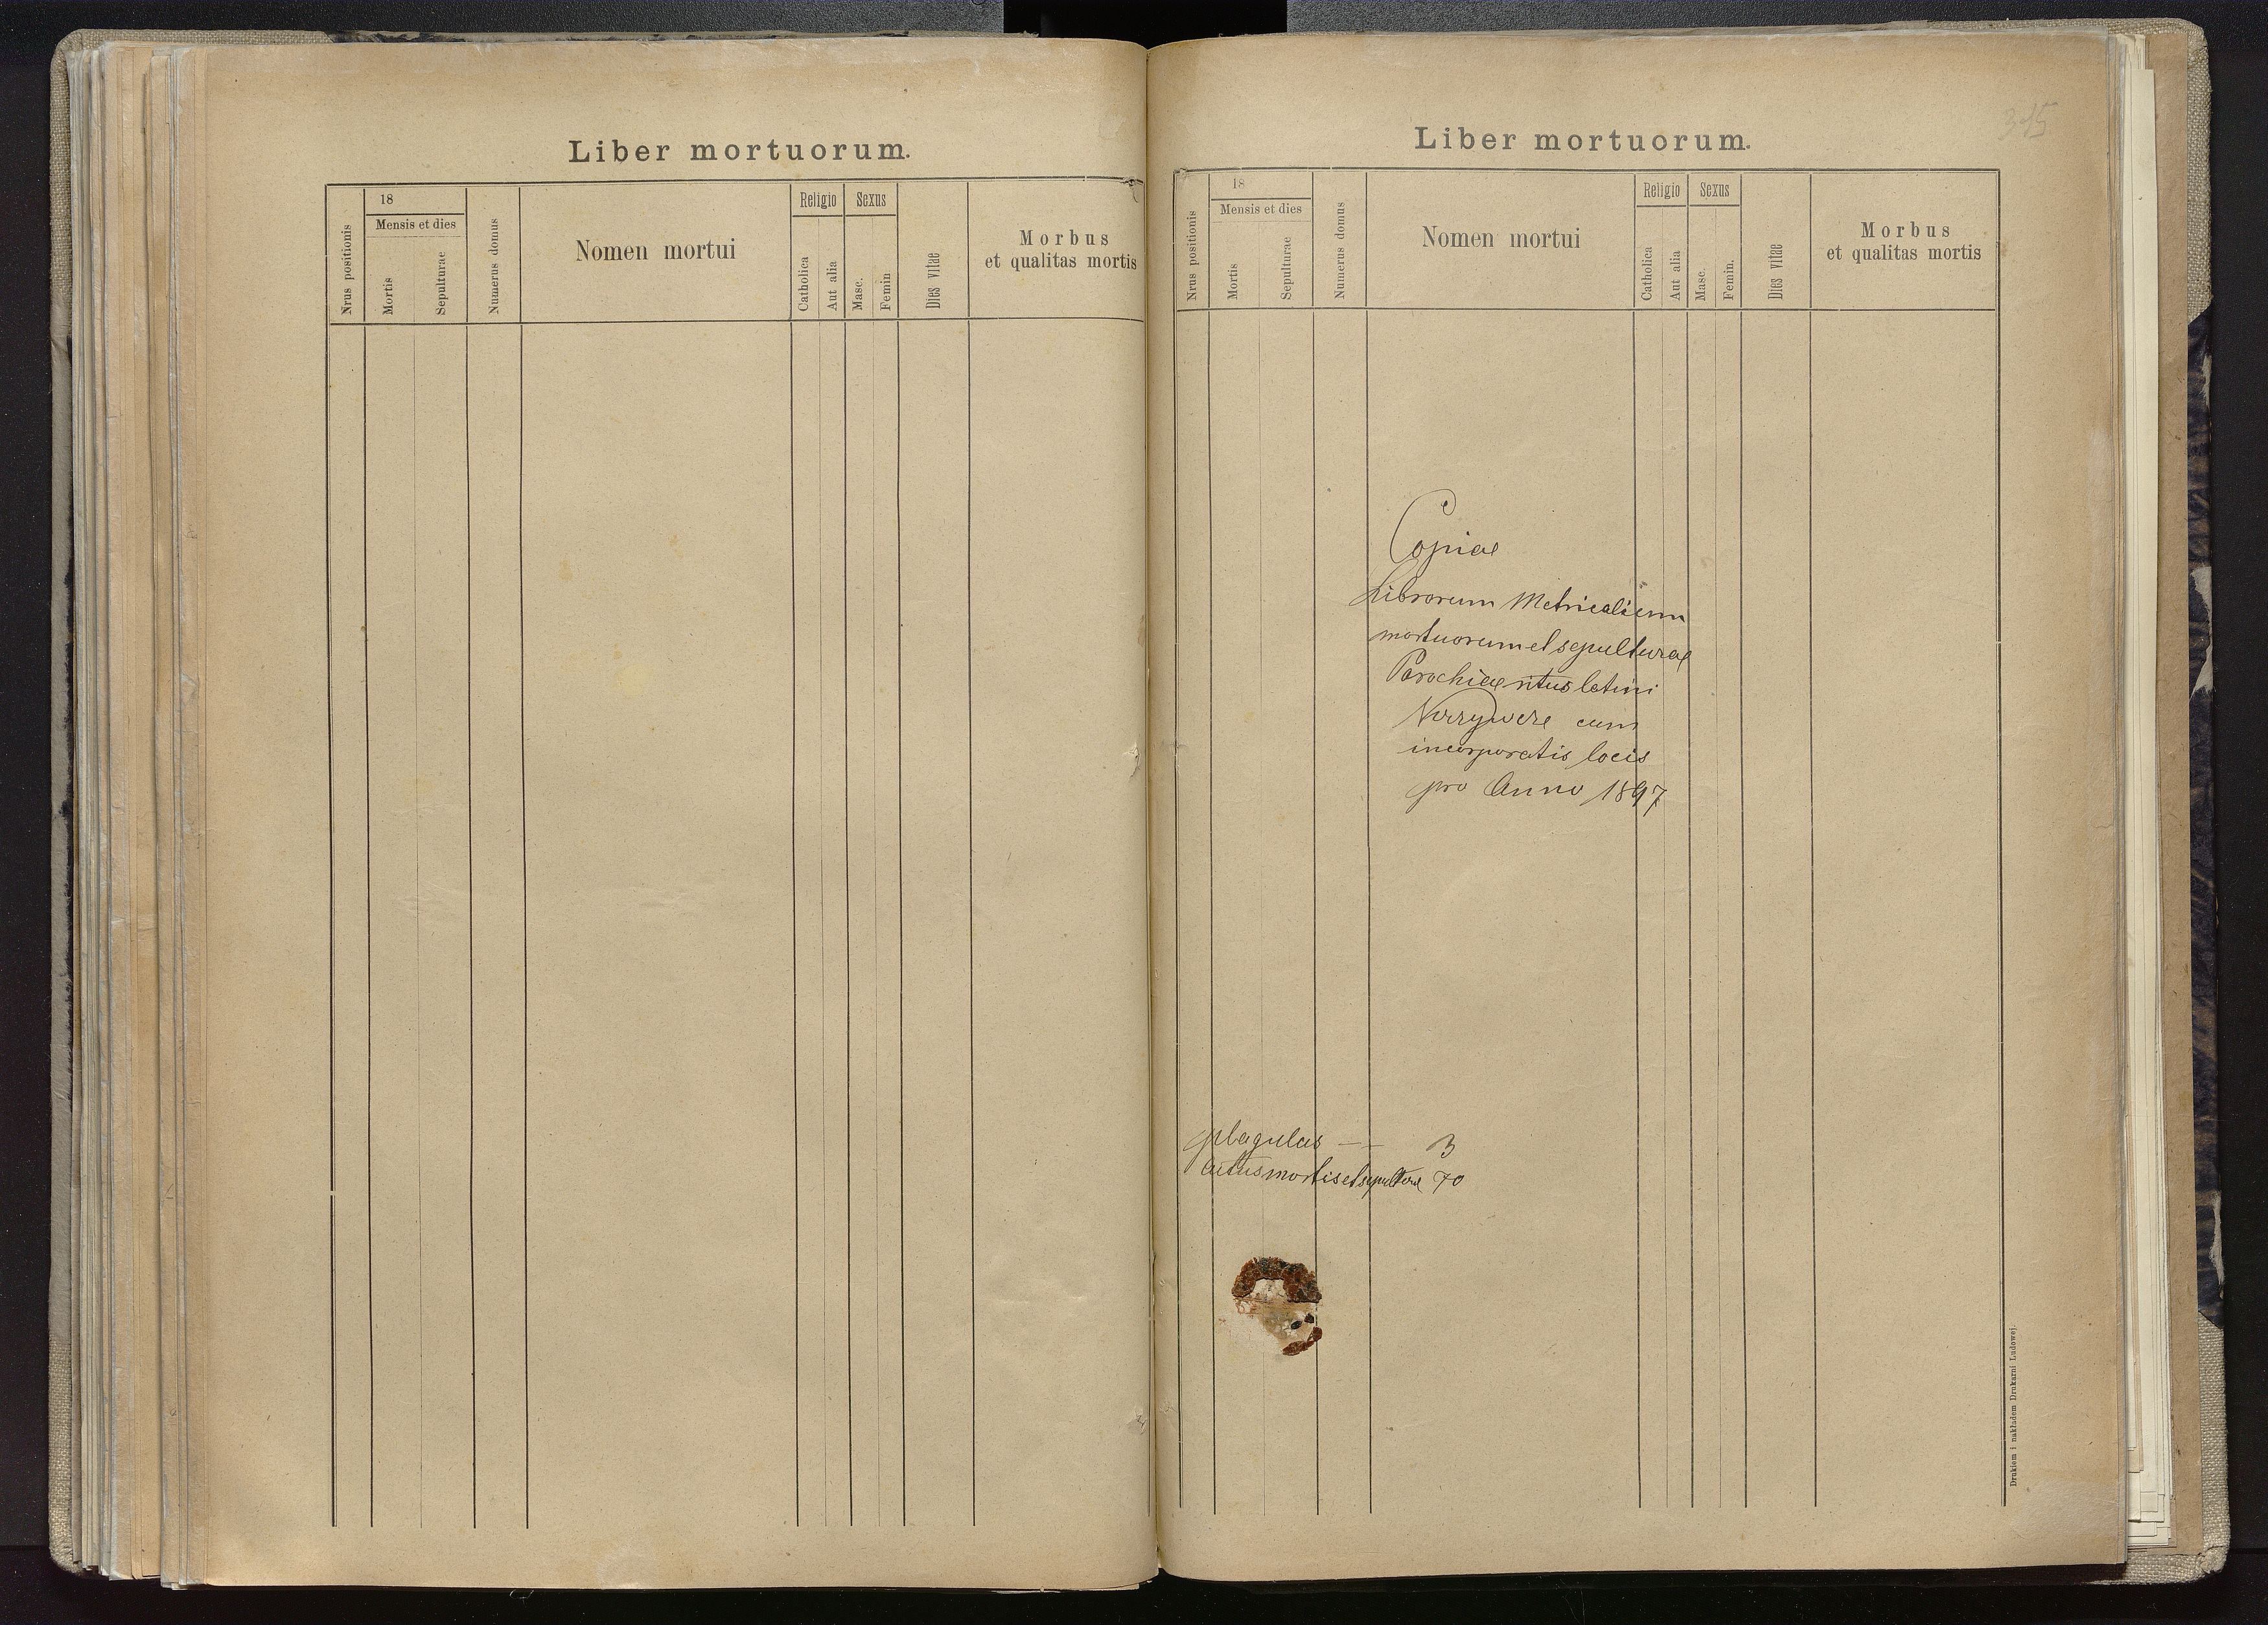 Liber mortuorum.
Nrus positionis
18
Mensis et dies
Mortis
Sepulturae
Numerus domus
Nomen mortui
Religio
Catholica
Aut alia
Sexus
Masc.
Femin
Dies vitae
Morbus
et qualitas mortis
Liber mortuorum.
315
Nrus positionis
18
Mensis et dies
Mortis
Sepulturae
Numerus domus
Nomen mortui
Religio
Catholica
Aut alia
Sexus
Masc.
Femin.
Dies vitae
Morbus
et qualitas mortis
Copiae
Librorum Metricalium
mortuorum et sepulturae
Parochiae ritus latini
cum
incorporatis locis
pro Anno 1897
plagulas — — 3
Actus mortis et sepulturae 70
Drukiem i nakładem Drukarni Ludowej.